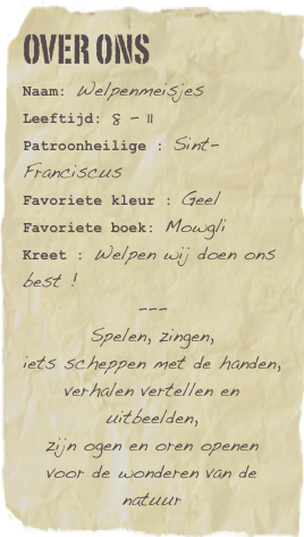 OVER ONS
Naam: Welpenmeisjes
Leeftijd: 8 - 11
Patroonheilige : Sint-
Franciscus
Favoriete kleur : Geel
Favoriete boek: Mowgli
Kreet : Welpen wij doen ons
best !
---
Spelen, zingen,
iets scheppen met de handen,
verhalen vertellen en
uitbeelden,
zijn ogen en oren openen
voor de wonderen van de
natuur